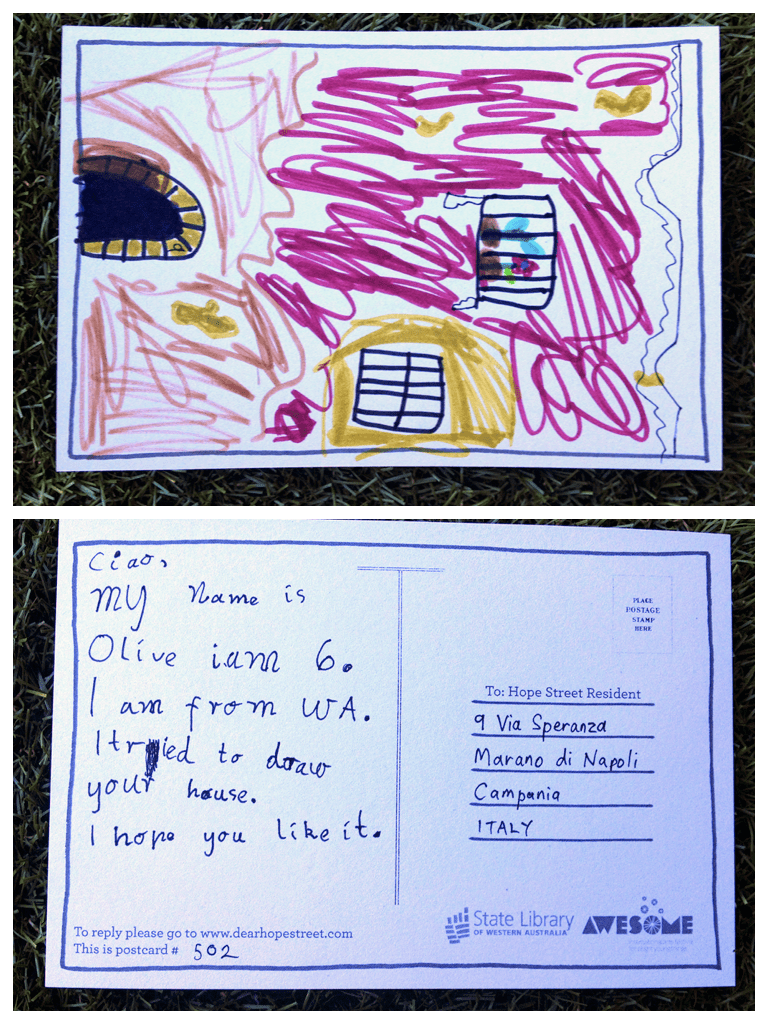 Ciao,
My Name is
Olive iam 6.
I am from WA.
I tried to draw
your house.
I hope you like it.
To reply please go to www.dearhopestreet.com
This is postcard # 502
PLACE
POSTAGE
STAMP
HERE
To: Hope Street Resident
9 Via Speranza
Marano di Napoli
Campania
ITALY
State Library
OF WESTERN AUSTRALIA
AWESOME